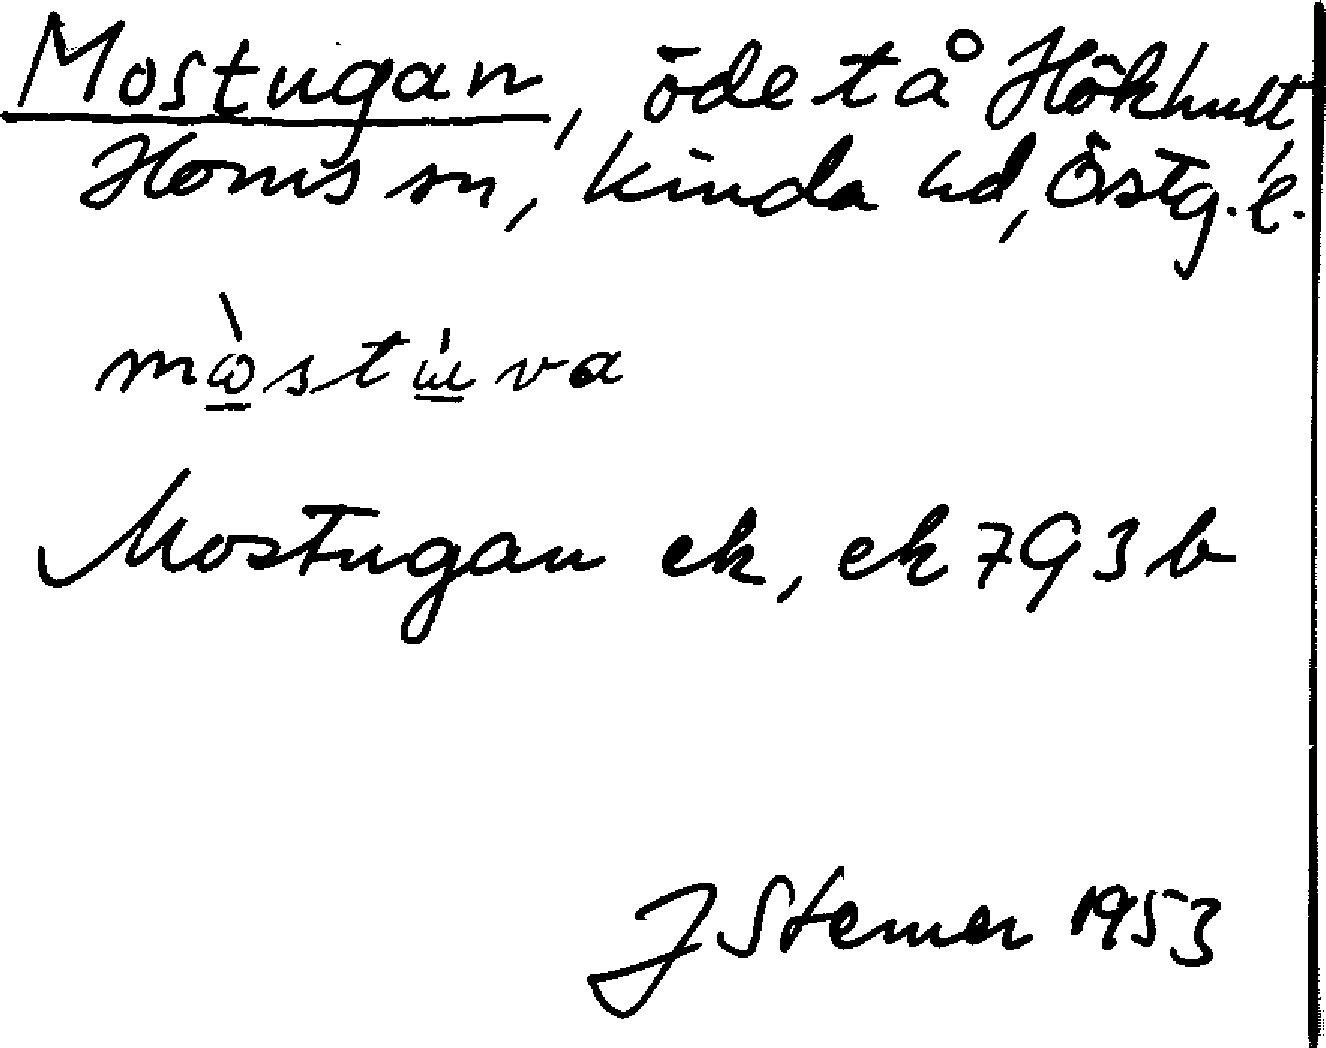 Mostugan, ödetå Hökhult
Horns sn, Kinda hd, Östg. l.
mòstúva
Mostugan ek, ek 793 b
J Sterner 1953